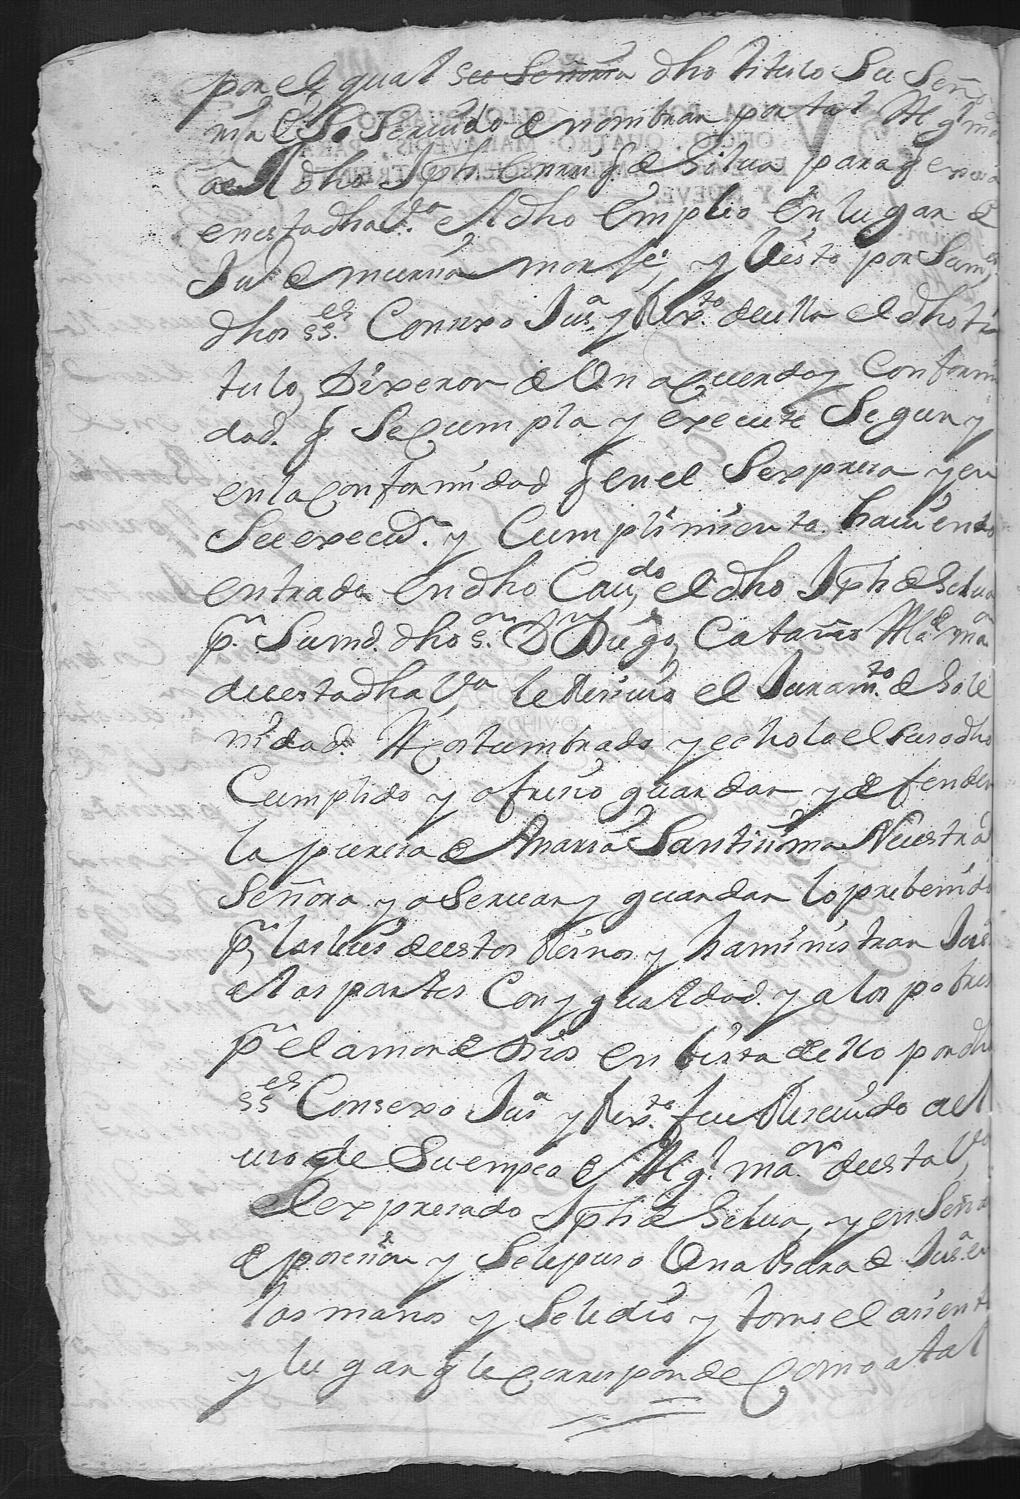 por el qual su Señoria dho titulo Su Seño
ria es Servido de nombrar por tal Alg.l mor
a el dho Jph Enrriq.z de Silua para q exersa
en esta dha V.a el dho Empleo En lugar de
Ju.o de murcia mor y Visto por Sum.des
dhos ss.es Consexo Jus.a y Rex.to de ella el dho ti
tulo, Dixeron de Un aCuerdo y Conformi
dad. q Se Cumpla y execute Segun y
en la Conformidad q en el Se expresa y en
Su execuz.n y Cumplimiento haciendo
entrada en dho Cauildo el dho Jph de Silua
p.r Sumd. dho s.or D.n Diego Cataño Al.de maior
de esta dha V.a le Reciuio el Juram.to de Sole
nidad Acostumbrado y echolo el suso dho
Cumplido y ofrecio guardar y defender
la puresa de Maria Santisima Nuestra
Señora y oServar y guardar lo prebenido
p.r las leies de estos Reinos y haministrar Jus.a
a las partes Con ygualdad y a los pobres
p.r el amor de Dios en bista de ello por dhos
ss.es Consexo Jus.a y Rex.to fue Reciuido a el
uso de Su empeo de Alg.l ma.or de esta V.a
el expresado Jph de Silua, y en Señal
de posecion y Se le puso Una Bara de Jus.a en
las manos y Se le dio y tomo el asiento
y lugar q le Corresponde Como a tal